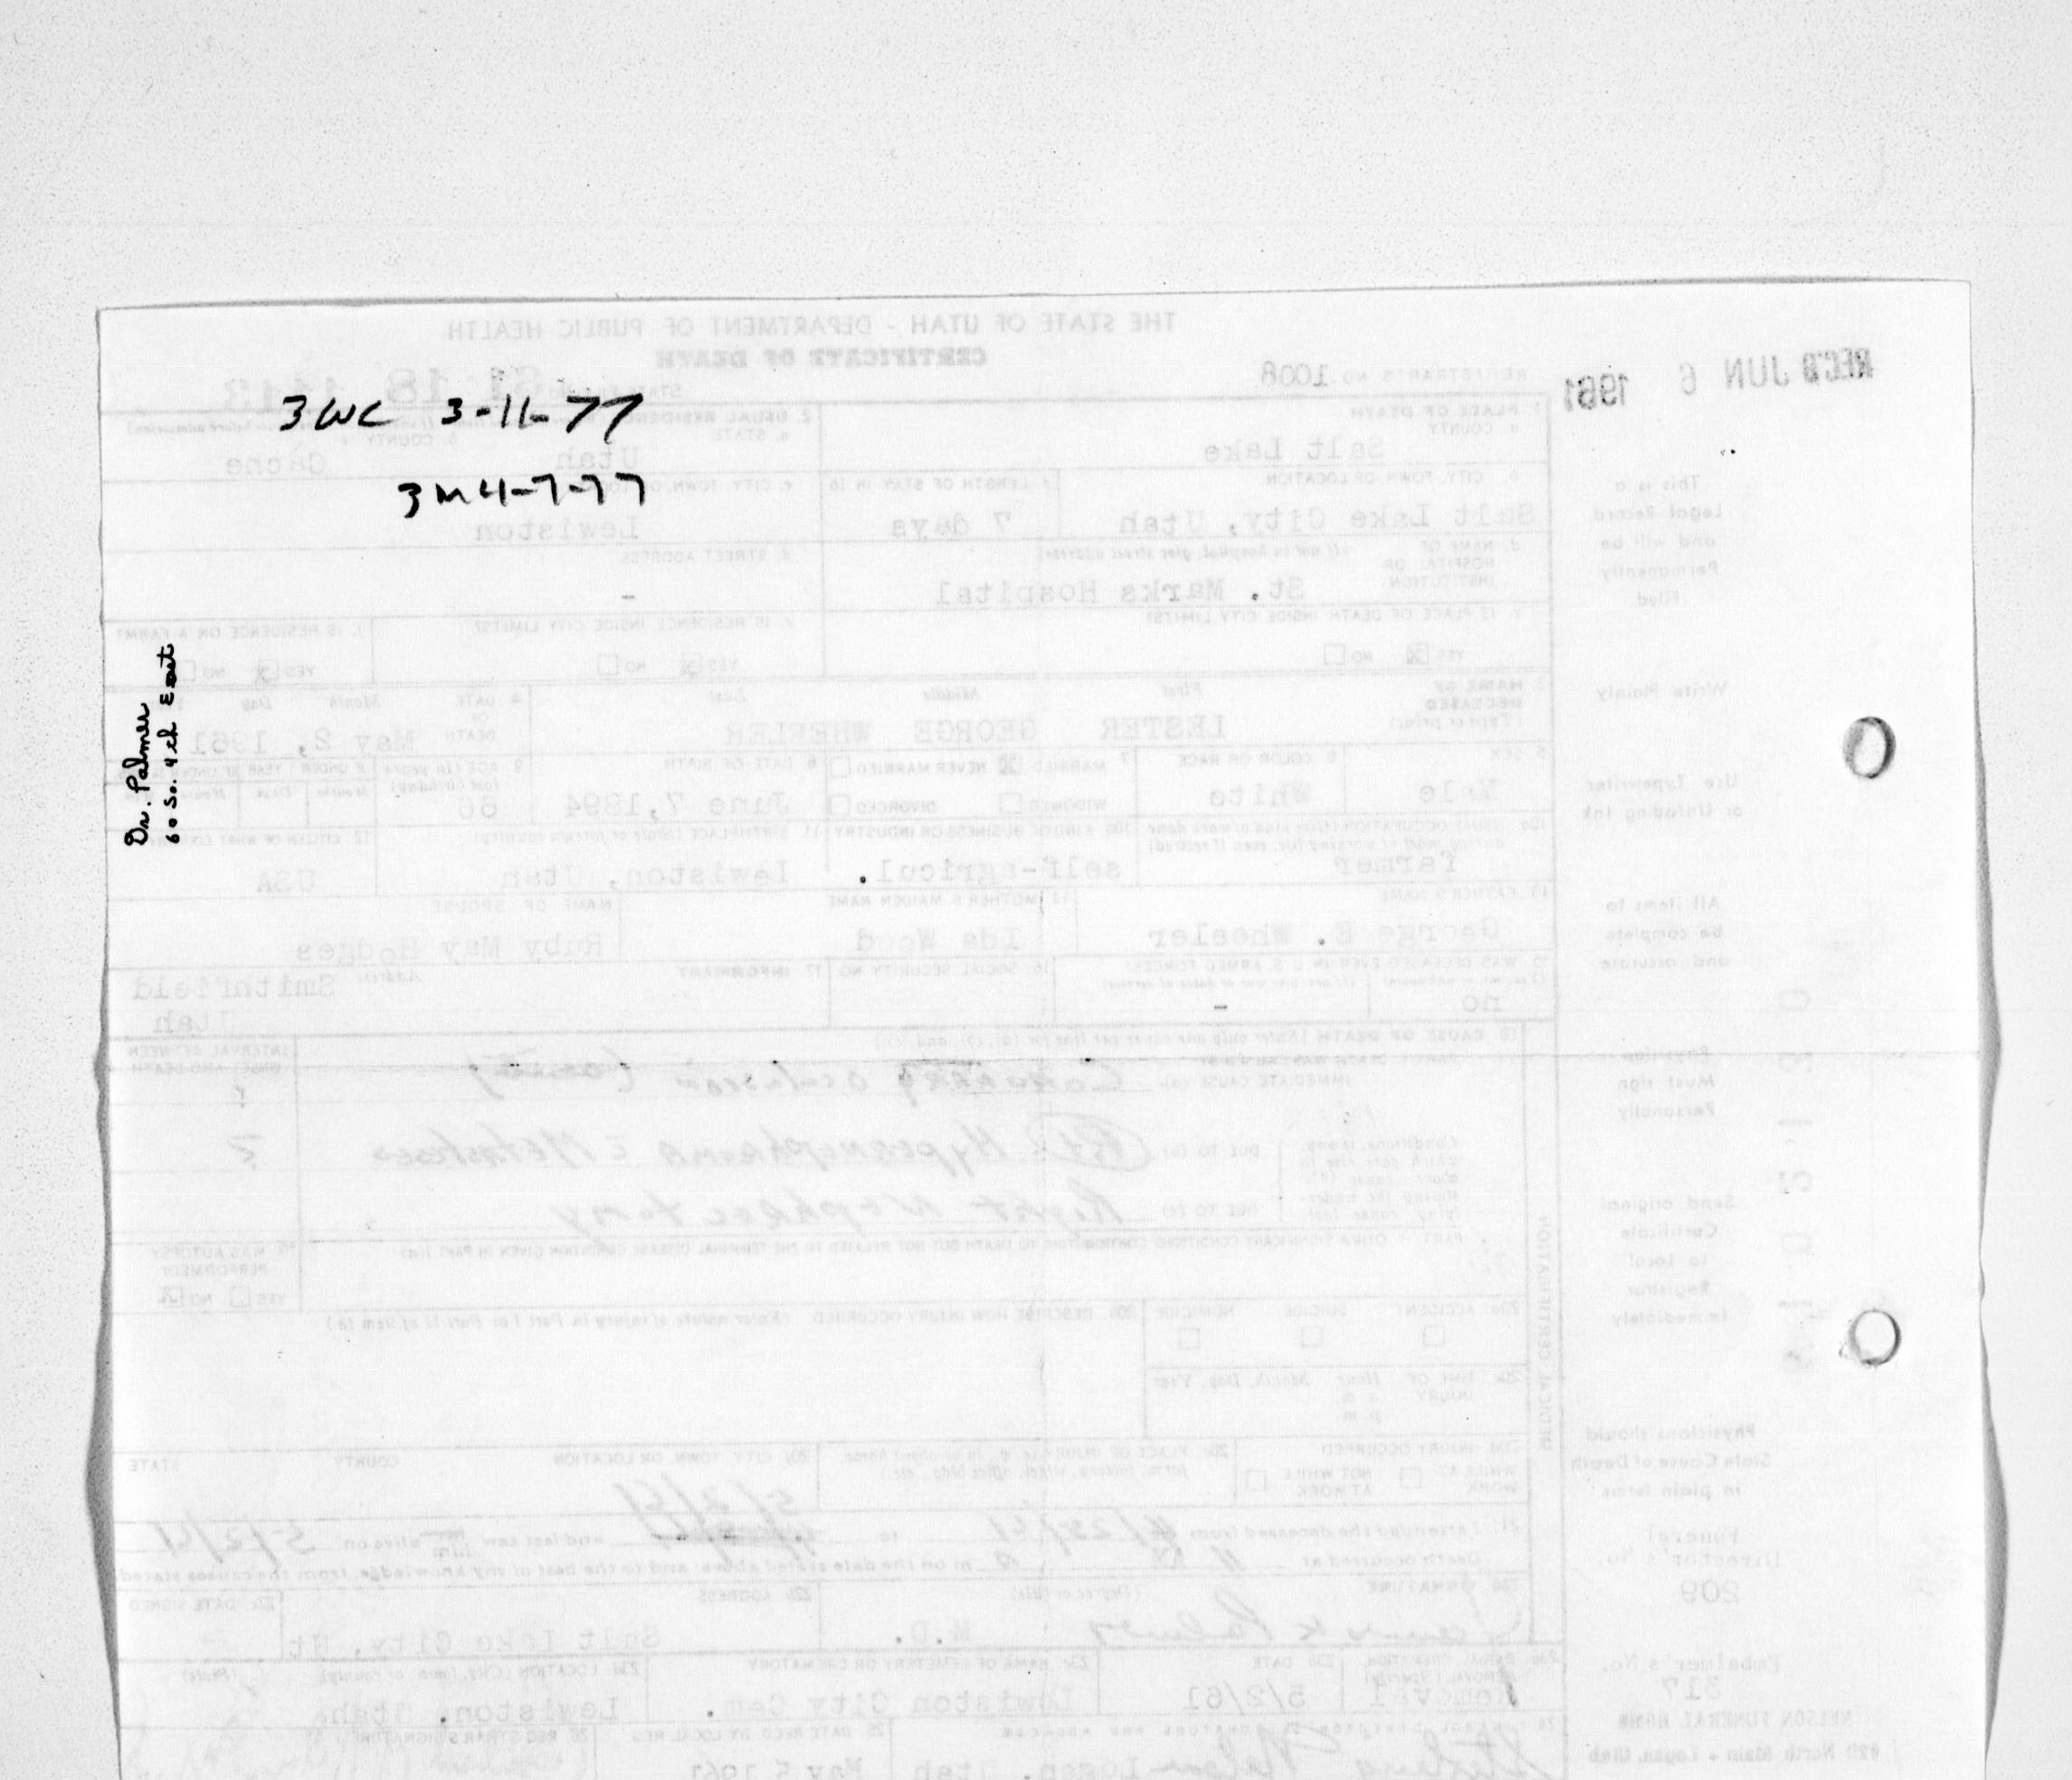 THE STATE OF UTAH - DEPARTMENT OF PUBLIC HEALTH
CERTIFICATE OF DEATH
REC'D JUN 6 1961
REGISTRAR'S NO. 1008
3WC 3-11-77
3M 4-7-77
Dr. Palmer
60 So. 4th East
This is a
Legal Record
and will be
Permanently
Filed
Write Plainly
Use Typewriter
or Unfading Ink
All items to
be complete
and accurate
Physician
Must sign
Personally
Send original
Certificate
to Local
Registrar
Immediately
Physicians should
State Cause of Death
in plain terms
Funeral
Director's No.
209
Embalmer's No.
317
NELSON FUNERAL HOME
North Main - Logan, Utah
1. PLACE OF DEATH
a. COUNTY
Salt Lake
2. USUAL RESIDENCE
a. STATE
Utah
b. COUNTY
Cache
b. CITY, TOWN, OR LOCATION
Salt Lake City, Utah
c. LENGTH OF STAY IN 1b
7 days
c. CITY, TOWN, OR
Lewiston
d. NAME OF HOSPITAL OR INSTITUTION
(If not in hospital, give street address)
St. Marks Hospital
d. STREET ADDRESS
-
e. IS PLACE OF DEATH INSIDE CITY LIMITS?
YES X NO
e. IS RESIDENCE INSIDE CITY LIMITS?
YES X NO
f. IS RESIDENCE ON A FARM?
YES X NO
3. NAME OF DECEASED
(Type or print)
First Middle Last
LESTER GEORGE WHEELER
4. DATE OF DEATH
Month Day
May 2, 1961
5. SEX
Male
6. COLOR OR RACE
White
7. MARRIED X NEVER MARRIED
WIDOWED DIVORCED
8. DATE OF BIRTH
June 7, 1894
9. AGE (In years last birthday)
66
10a. USUAL OCCUPATION (Give kind of work done during most of working life, even if retired)
farmer
10b. KIND OF BUSINESS OR INDUSTRY
self-agricul.
11. BIRTHPLACE (State or foreign country)
Lewiston, Utah
12. CITIZEN OF WHAT
USA
13. FATHER'S NAME
George E. Wheeler
14. MOTHER'S MAIDEN NAME
Ida Wood
NAME OF SPOUSE
Ruby May Hodges
15. WAS DECEASED EVER IN U.S. ARMED FORCES?
(Yes, no, or unknown) (If yes, give war or dates of service)
no -
16. SOCIAL SECURITY NO.
17. INFORMANT
Address
Smithfield
Utah
18. CAUSE OF DEATH (Enter only one cause per line for (a), (b), and (c).)
PART I. DEATH WAS CAUSED BY
IMMEDIATE CAUSE (a)
Coronary occlusion
INTERVAL BETWEEN
ONSET AND DEATH
?
DUE TO (b)
Hypernephroma c Metastases
?
DUE TO (c)
Right Nephrectomy
PART II. OTHER SIGNIFICANT CONDITIONS CONTRIBUTING TO DEATH BUT NOT RELATED TO THE TERMINAL DISEASE CONDITION GIVEN IN PART I(a)
19. WAS AUTOPSY
PERFORMED?
YES NO X
20a. ACCIDENT SUICIDE HOMICIDE
20b. DESCRIBE HOW INJURY OCCURRED (Enter nature of injury in Part I or Part II of item 18.)
20c. TIME OF INJURY
Hour Month, Day, Year
a. m.
p. m.
MEDICAL CERTIFICATION
20d. INJURY OCCURRED
WHILE AT WORK NOT WHILE AT WORK
20e. PLACE OF INJURY (e. g., in or about home, farm, factory, street, office bldg., etc.)
20f. CITY, TOWN, OR LOCATION COUNTY STATE
5/2/61
21. I attended the deceased from 4/25/61 to and last saw him alive on 5/2/61
Death occurred at m on the date stated above; and to the best of my knowledge, from the causes stated
22a. SIGNATURE (Degree or title)
Palmer M.D.
22b. ADDRESS
Salt Lake City, Ut
22c. DATE SIGNED
23a. BURIAL, CREMATION, REMOVAL (Specify)
Removal
23b. DATE
5/2/61
23c. NAME OF CEMETERY OR CREMATORY
Lewiston City Cem.
23d. LOCATION (City, town, or county) (State)
Lewiston, Utah
24. FUNERAL DIRECTOR'S SIGNATURE AND ADDRESS
Nelson Logan, Utah
25. DATE RECD BY LOCAL REG.
May 5 1961
26. REGISTRAR'S SIGNATURE